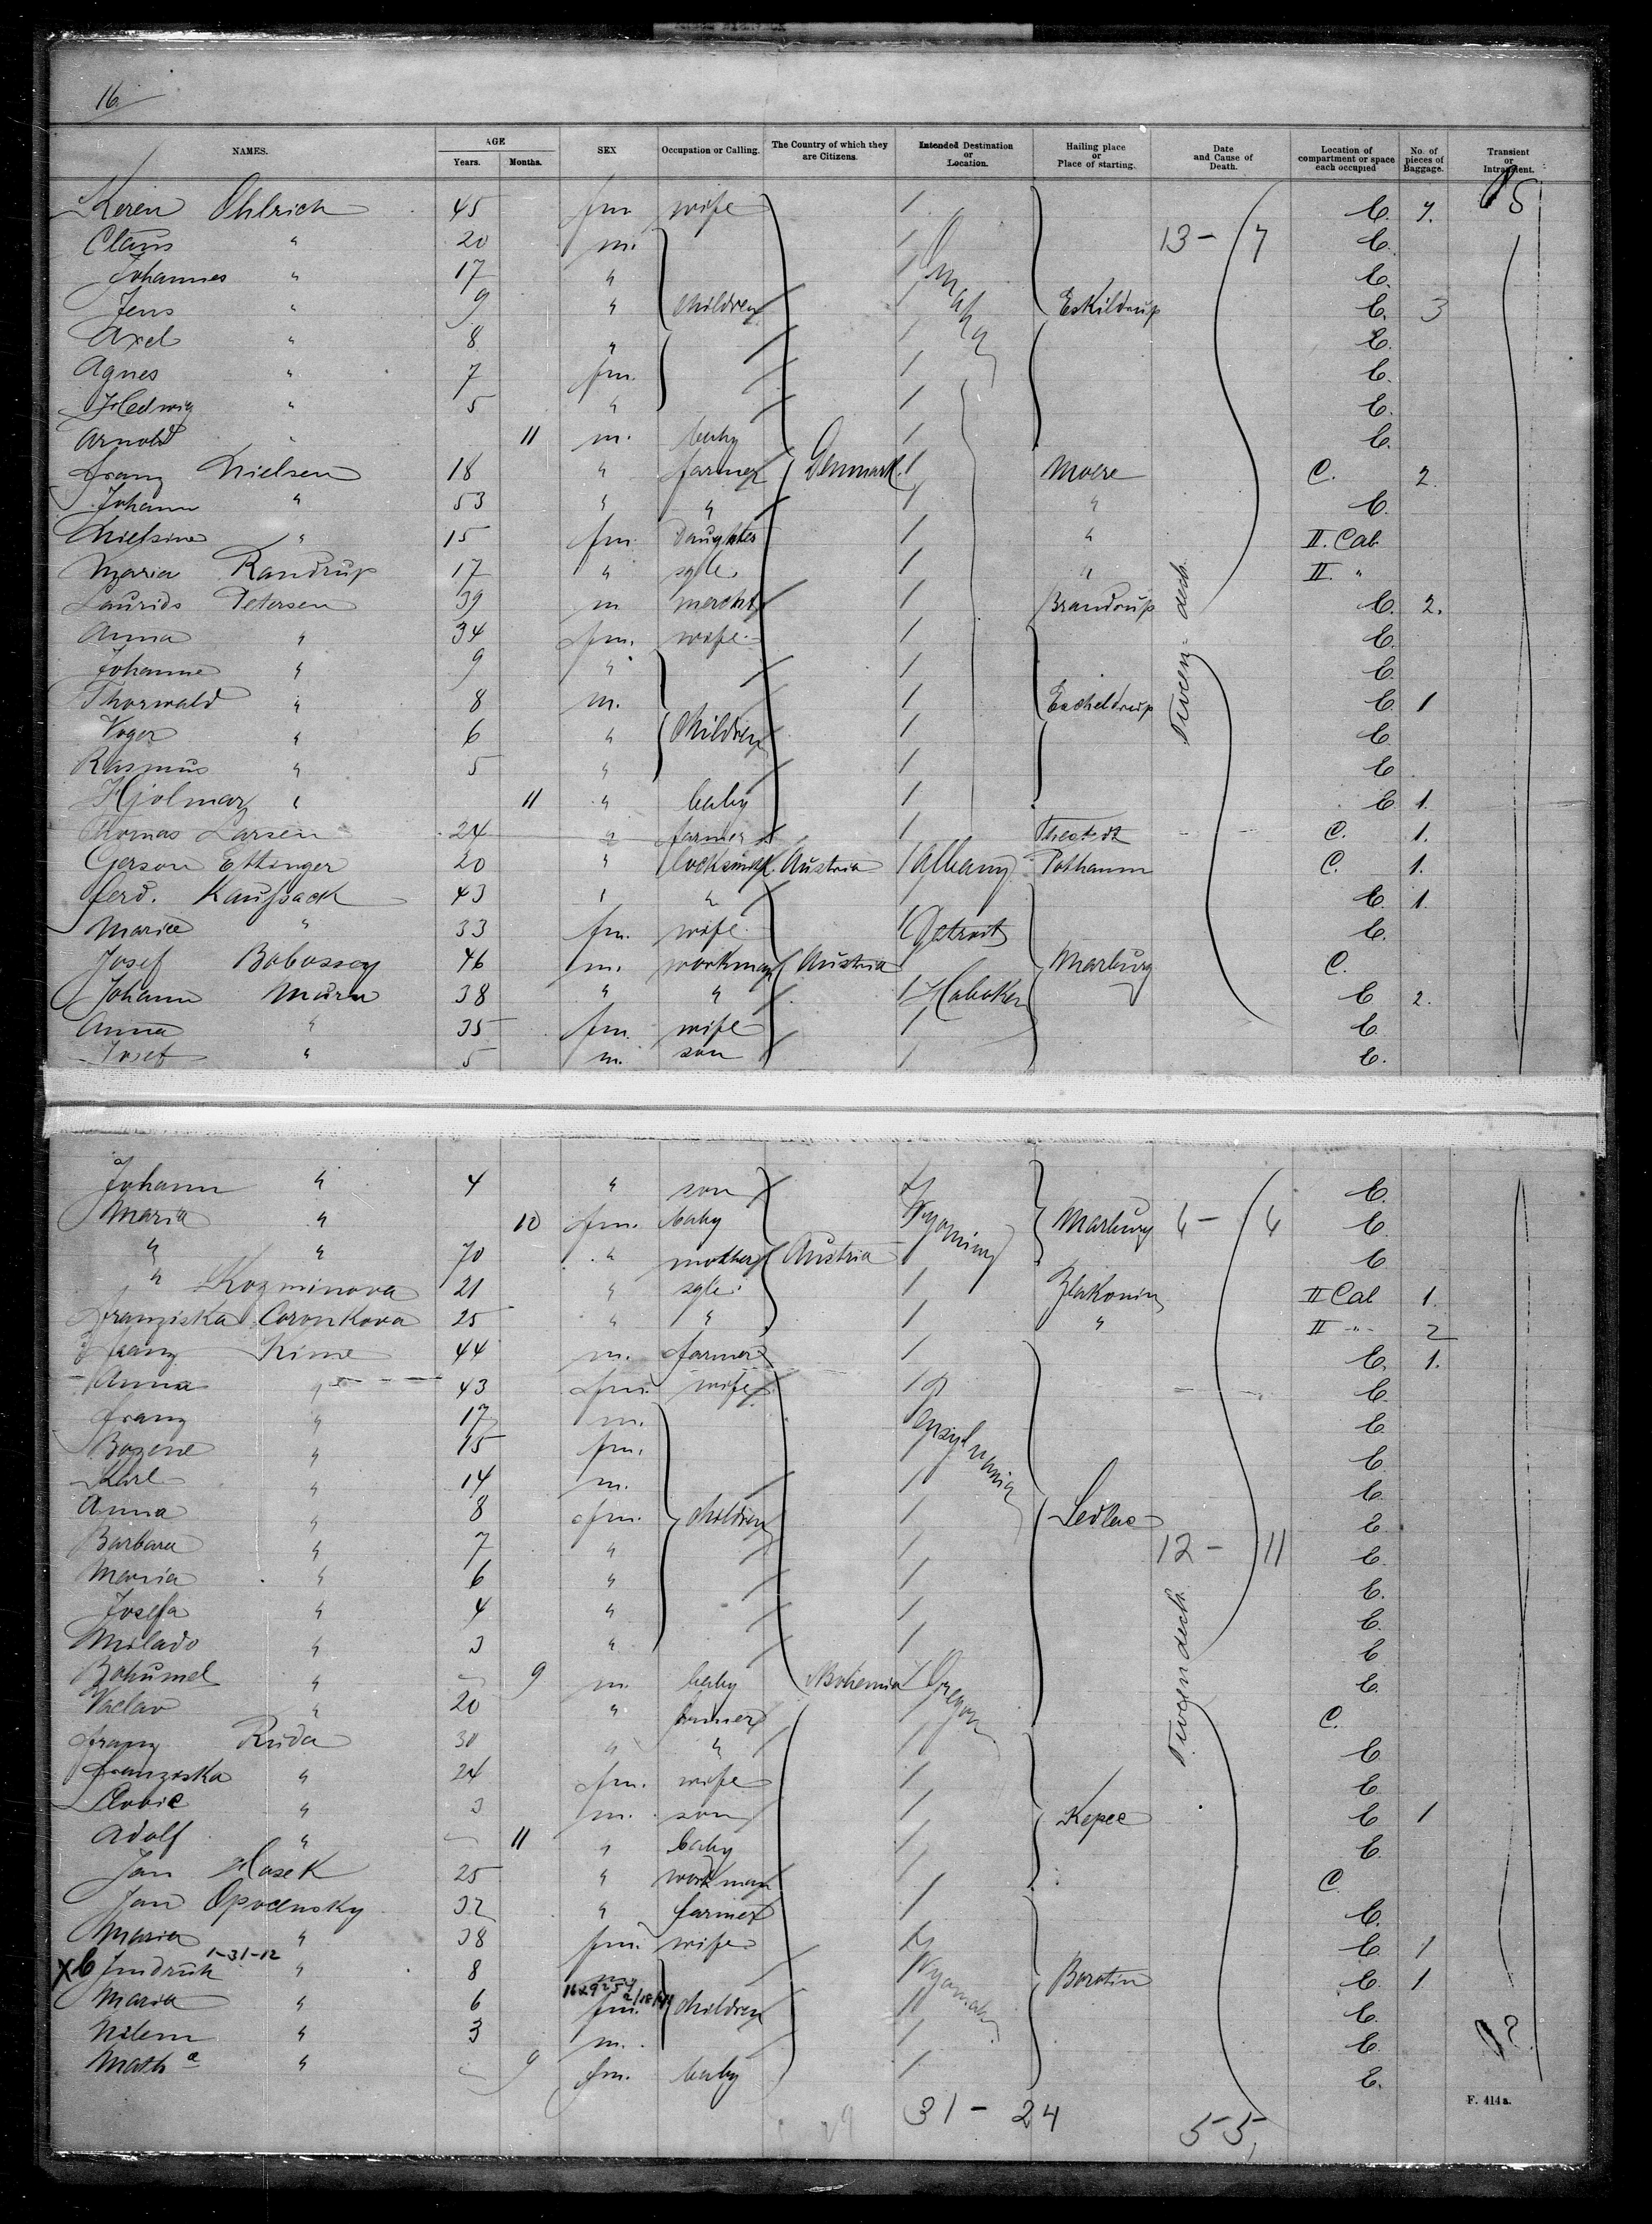 16
NAMES. AGE Years. Months. SEX Occupation or Calling. The Country of which they are Citizens. Intended Destination or Location. Hailing place or Place of starting. Date and Cause of Death. Location of compartment or space each occupied No. of pieces of Baggage. Transient or Intransient.
Keren Ohlrich 45 fm wife / C. 7.
Claus " 20 m. / 13 - 7 C.
Johannes " 17 " / Omaha C.
Jens " 9 " Children / Eskildrup C. 3
Axel " 8 " / C.
Agnes " 7 fm. / C.
Hedwig " 5 " / C.
Arnold " 11 m. baby / C.
Franz Nielsen 18 " farmer Denmark / Moere C. 2
Johann " 53 " " / " C.
Nielsine " 15 fm daughter / " II. Cab.
Maria Randrup 17 " sgle. / " II. "
Laurids Petersen 39 m mercht / Brandrup C. 2.
Anna " 34 fm. wife / C.
Johanne " 9 " / C.
Thorwald " 8 m. / Escheldrup C. 1
Voger " 6 " Children / C.
Rasmus " 5 " / C
Hjolmar " 11 " baby / C 1.
Tween dech.
Thomas Larsen 24 " farmer / Thestedt C. 1.
Gerson Ettinger 20 " locksmith Austria / Albany Pothamm C. 1.
Ferd. Kaufsack 43 " " / C. 1.
Maria " 33 fm. wife / Detroit C.
Josef Bobossey 46 m. workman Austria / Marburg C.
Johann Murn 38 " " / Hoboken C 2.
Anna " 35 fm. wife / C.
Josef " 5 m. son / C.
Johann " 4 " son / C.
Maria " 10 fm. baby Wyoming Marburg 6 - 6 C.
" " 70 " mother Austria / C
" Kozminova 21 " sgle. / Zlakonin II Cab 1.
Franziska Coronkova 25 " " / " II " 2
Franz Kime 44 m. farmer / C. 1.
Anna " 43 fm. wife / C.
Franz " 17 m. Pensylvania C.
Bozene " 15 fm. / C.
Karl " 14 m. / C.
Anna " 8 fm. children / Sedlec C
Barbara " 7 " / 12 - 11 C.
Maria " 6 " / C.
Josefa " 4 " / C.
Milado " 3 " / C
Bohumel " 9 m. baby Bohemia / Oregon C.
Vaclav " 20 " farmer / C.
Tweendech
Franz Ruda 30 " " / C
Franziska " 24 fm. wife / C.
" 3 m. son / Kepec C 1
Adolf " 11 " baby / C.
Jan Hasek 25 " workman / C
Jan Opocensky 32 " farmer / C.
Maria " 38 fm. wife / C. 1
XC Jindruh 1-31-12 " 8 m / Wyoming Borotin C. 1
Maria " 6 fm. children / C.
" 3 m. / C.
Math a " 9 fm. baby / C.
31 - 24 55,
F. 414 a.